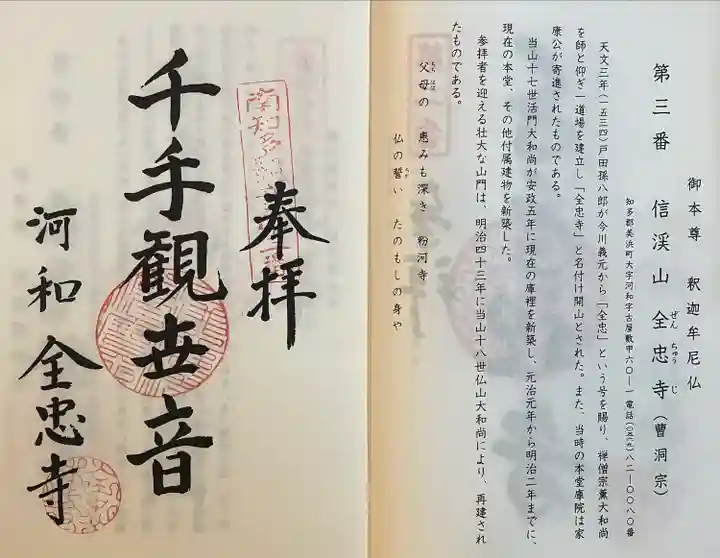 御本尊 釈迦牟尼仏
第三番 信渓山 全忠寺（曹洞宗）
ぜん ちゅう じ
知多郡美浜町大字河和字古屋敷甲六〇―一 電話（〇五六九）八二―〇〇八〇番
天文三年（一五三四）戸田孫八郎が今川義元から「全忠」という号を賜り、禅僧宗薫大和尚
を師と仰ぎ一道場を建立し「全忠寺」と名付け開山とされた。また、当時の本堂庫院は家
康公が寄進されたものである。
当山十七世活門大和尚が安政五年に現在の庫裡を新築し、元治元年から明治二年までに、
現在の本堂、その他付属建物を新築した。
参拝者を迎える壮大な山門は、明治四十三年に当山十八世仏山大和尚により、再建され
たものである。
父母の 恵みも深き 粉河寺
ちち はは
仏の誓い たのもしの身や
ちか
奉拝
南知多
千手観世音
河和 全忠寺